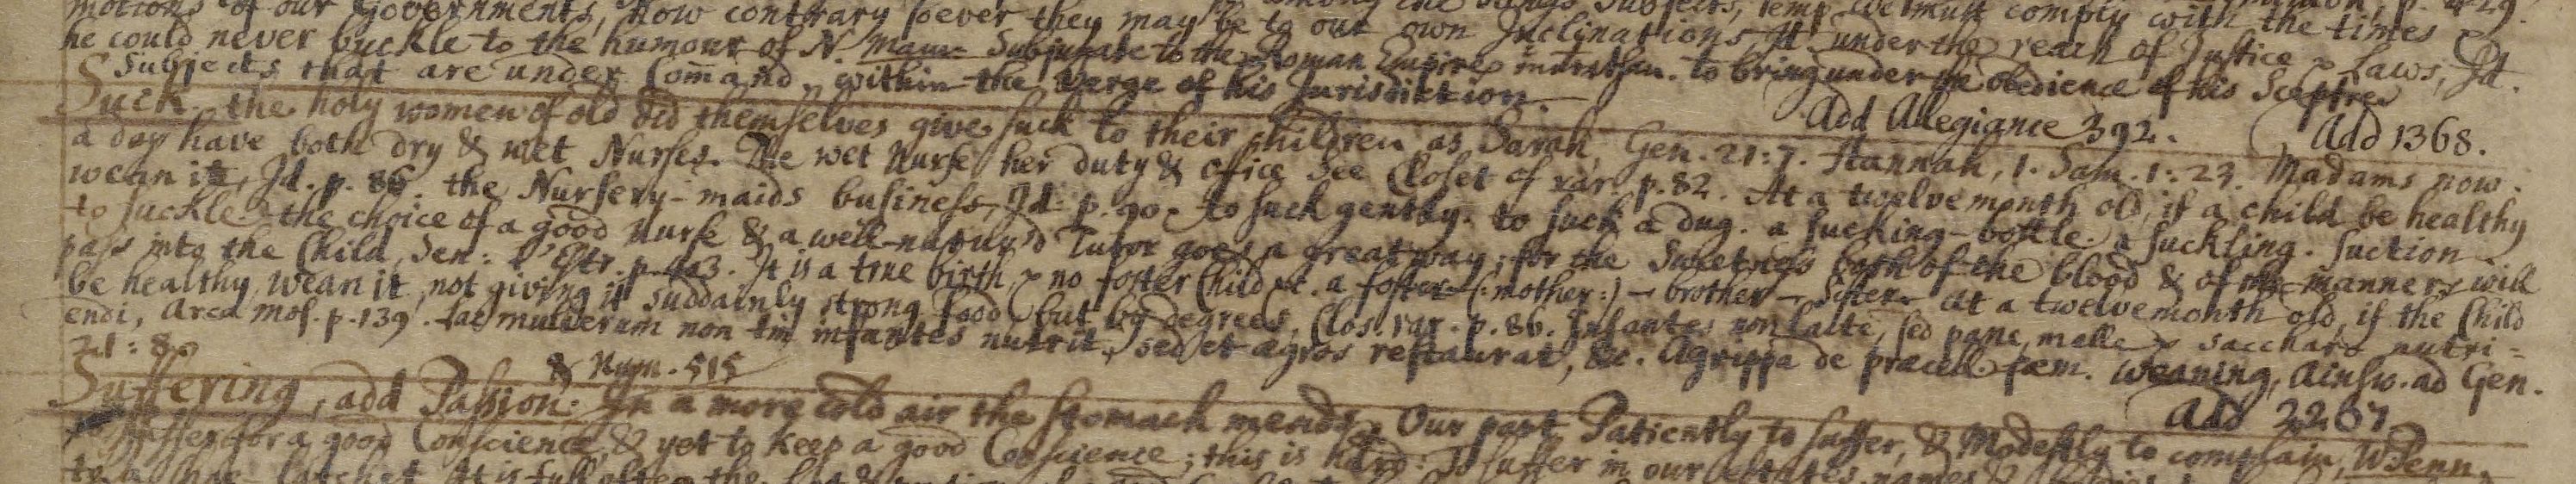 motions of our Governments, how contrary soever they may be to our own Inclinations, Id. under the reach of Justice & Laws, Id.
he could never buckle to the humour of N. Subjugate to the Roman Empire to bring under the obedience of his Sceptre
Subjects that are under Com̄and, within the Verge of his Jurisdiction. Add Allegiance 392. Add 1368.
Suck. the holy women of old did themselves give suck to their children, as Sarah, Gen. 21:7. Hannah, 1. Sam. 1:23. Madams now
a day have both dry & wet Nurses. The wet Nurse her duty & office See Closet of rar. p. 82. At a twelve month old, if a child be healthy
wean it, Id. p. 86. the Nursery-maids business, Id. p. 90. to suck gently. to suck a dug. a sucking-bottle. a suckling. suction
to suckle. the choice of a good Nurse & a well-natur'd Tutor goes a great way; for the Sweetness both of the blood & of the manners will
pass into the Child, Sen: L'Estr. p. 403. It is a true birth, & no foster Child &c. a foster (:mother:) - brother - Sister. At a twelvemonth old, if the Child
be healthy, wean it, not giving it suddainly strong food, but by degrees, Clos. rar. p. 86. Infantes non lacte, sed pane, melle & saccharo nutri=
endi, Arca Mos. p. 139. lac mulierum non tm̄ infantes nutrit, sed et ægros restaurat, &c. Agrippa de præcell. fæm. Weaning, Ainsw. ad Gen.
21:8. & Num. 515 Add 2267
Suffering, add Passion. In a more cold air the Stomach mends. Our part Patiently to suffer, & Modestly to complain, WPenn.
to suffer for a good Conscience, & yet to keep a good Conscience; this is hard. To suffer in our estates, names &